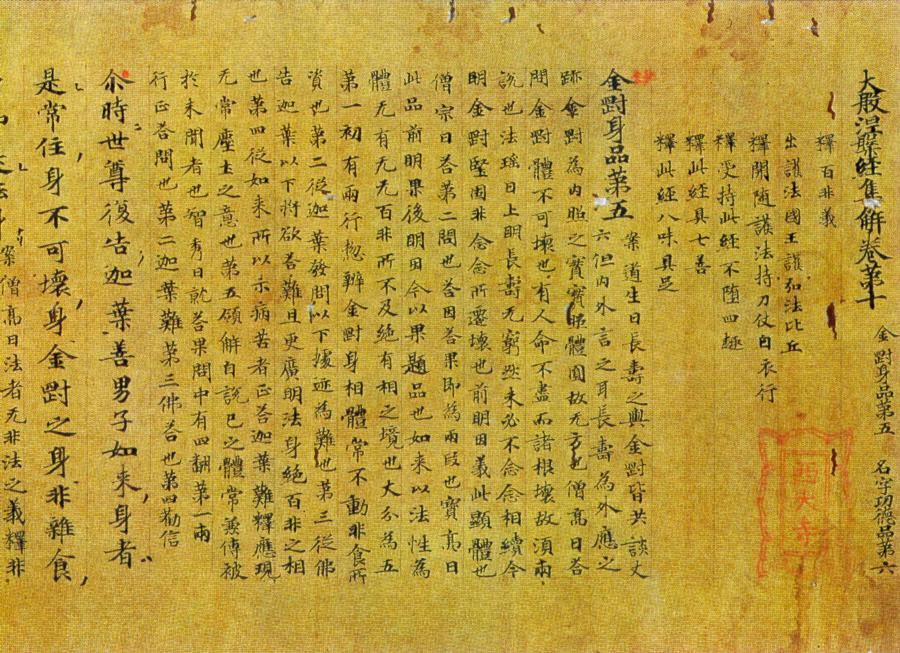 大般涅槃經集解卷第十 金剛身品第五 名字功德品第六
釋百非義
出護法國王護弘法比丘
釋開随護法持刀仗白衣行
釋受持此經不随四趣
釋此經具七善
釋此經八味具足
金剛身品第五
案道生曰長壽之與金剛皆共談丈
六但内外言之耳長壽為外應之
跡金剛為内照之實實照體圓故无方也僧亮曰答
問金剛體不可壞也有人命不盡而諸根壞故須兩
説也法瑶曰上明長壽无窮然未必不念念相續今
明金剛堅固非念念所遷壞也前明因義此顯體也
僧宗曰答第二問也答因答果即為兩段也寶亮曰
此品前明果後明因今以果題品也如来以法性為
體无有无无百非所不及絶有相之境也大分為五
第一初有兩行惣辨金剛身相體常不動非食所
資也第二從迦葉發問以下據迹為難也第三從佛
告迦葉以下將欲答難且更廣明法身絶百非之相
也第四從如来所以示病苦者正答迦葉難釋應現
无常塵土之意也第五領解自説已之體常兼傳被
於未聞者也智秀曰就答果問中有四翻第一兩
行正答問也第二迦葉難第三佛答也第四勸信
尒時世尊復告迦葉善男子如来身者
是常住身不可壞身金剛之身非雜食
案僧亮曰法者无非法之義釋非
西大寺